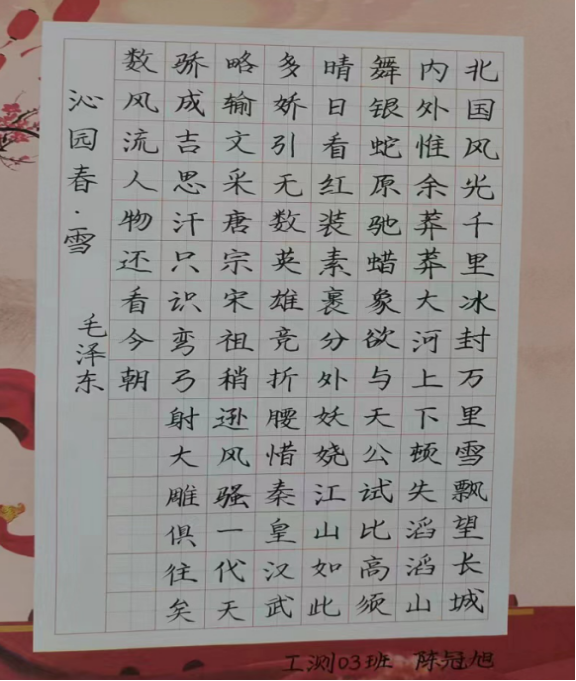 北国风光千里冰封万里雪飘望长城
内外惟余莽莽大河上下顿失滔滔山
舞银蛇原驰蜡象欲与天公试比高须
晴日看红装素裹分外妖娆江山如此
多娇引无数英雄竞折腰惜秦皇汉武
略输文采唐宗宋祖稍逊风骚一代天
骄成吉思汗只识弯弓射大雕俱往矣
数风流人物还看今朝
沁园春·雪 毛泽东
工测03班 陈冠旭